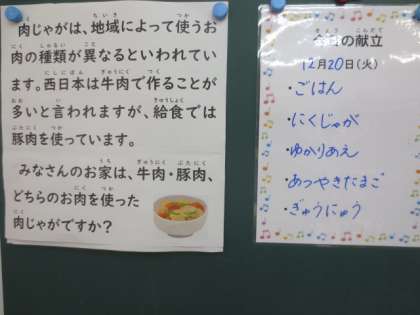 肉じゃがは、地域によって使うお
肉の種類が異なるといわれてい
ます。西日本は牛肉で作ることが
多いと言われますが、給食では
豚肉を使っています。
みなさんのお家は、牛肉・豚肉、
どちらのお肉を使った
肉じゃがですか？
の献立
12月20日(火)
・ごはん
・にくじゃが
・ゆかりあえ
・あつやきたまご
・ぎゅうにゅう